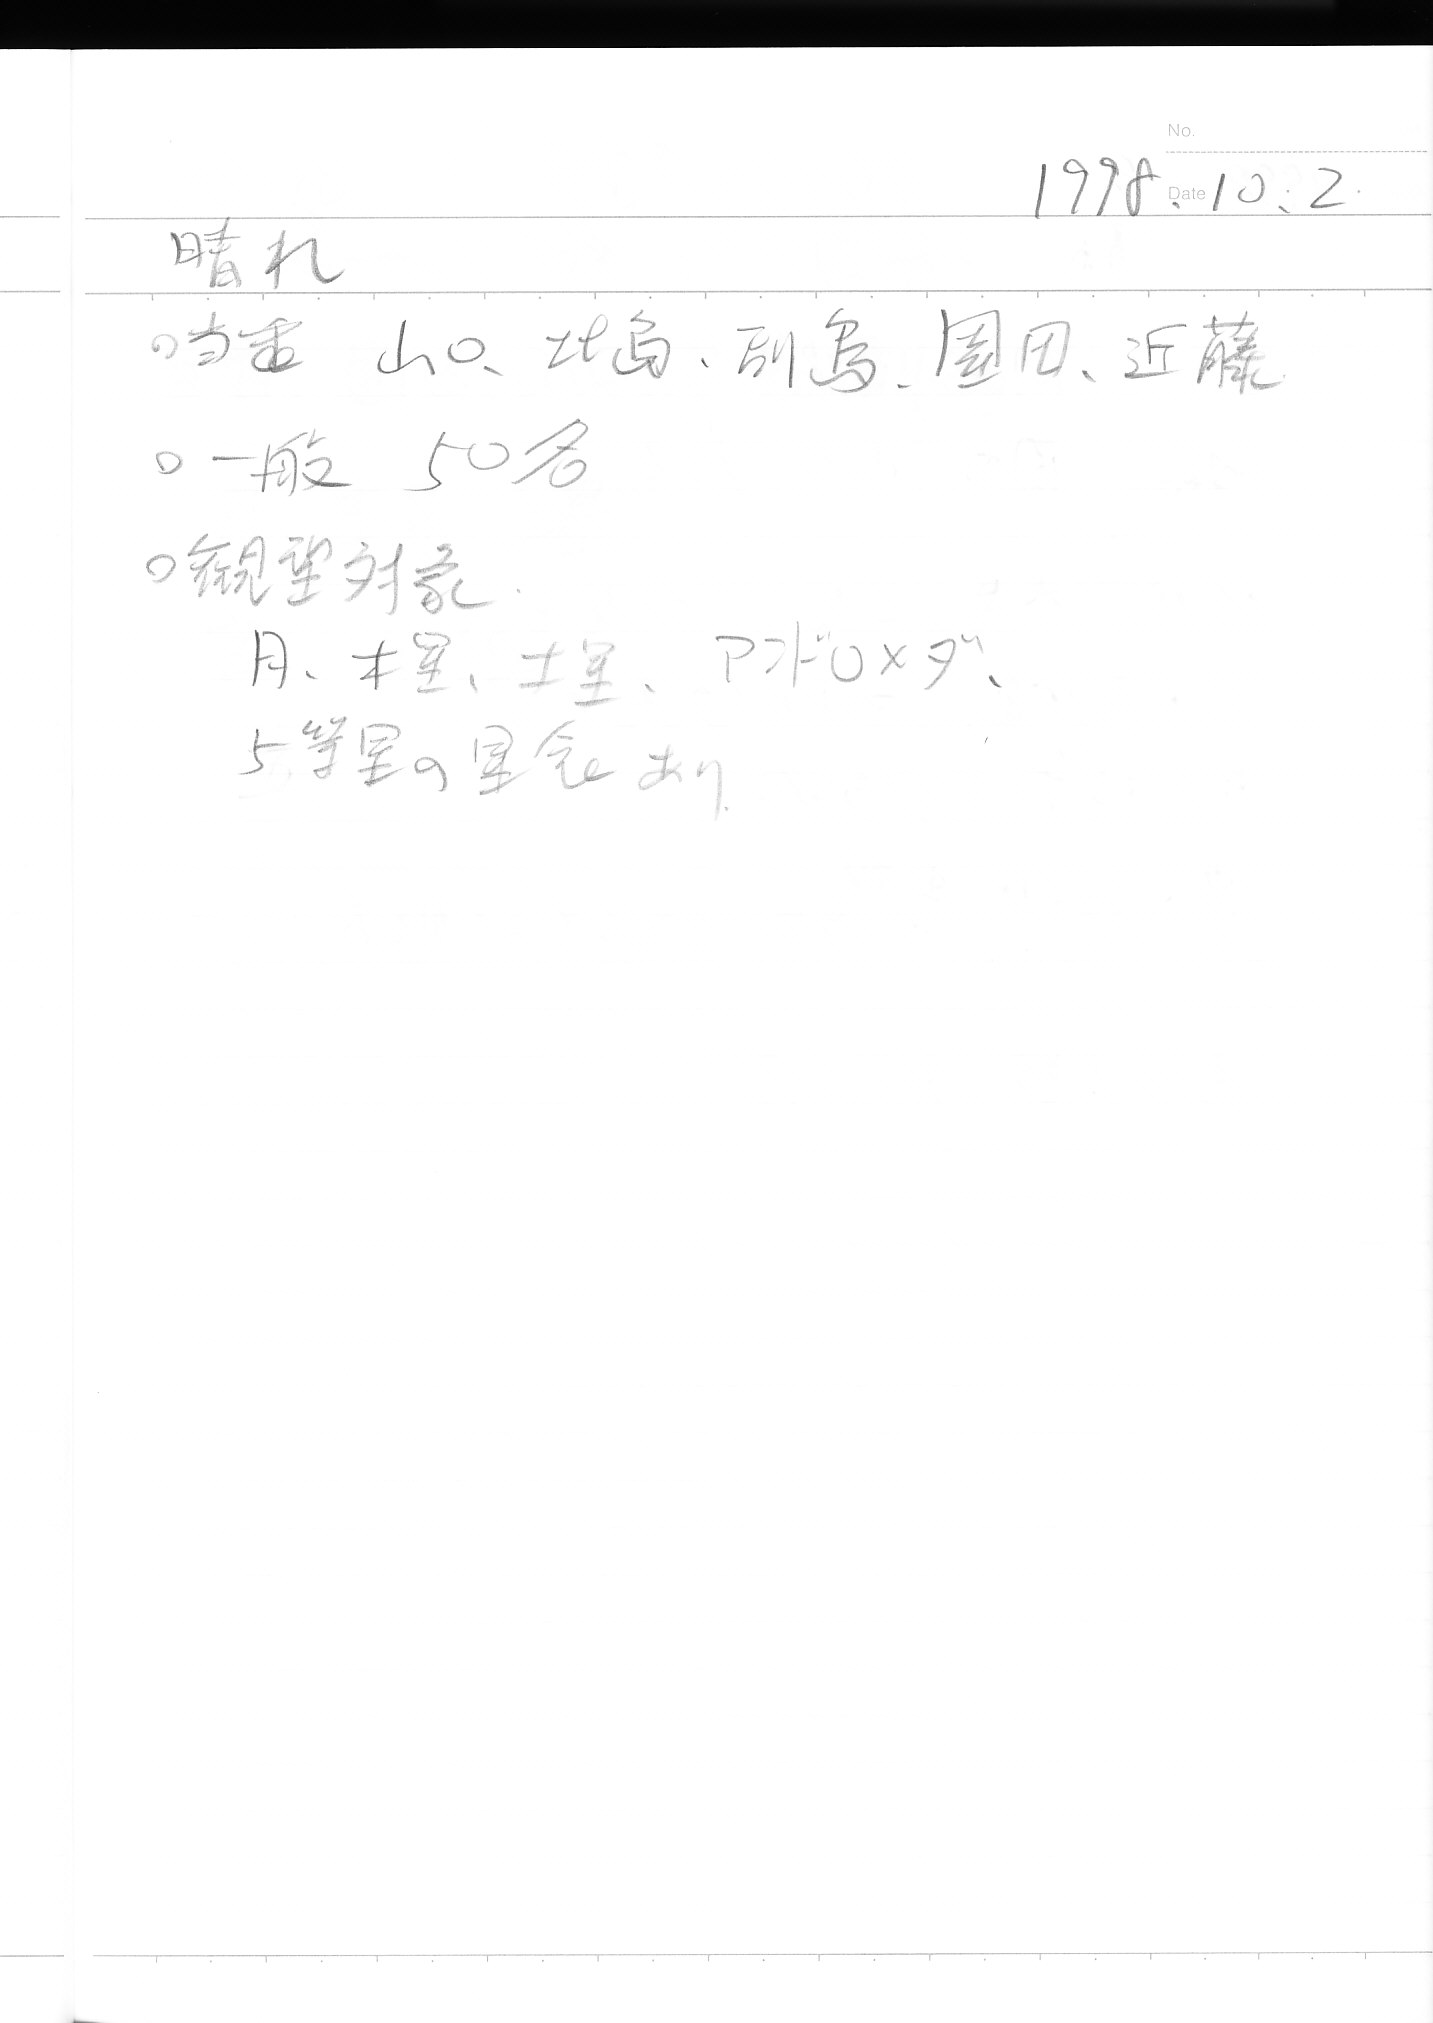 No.
1998. Date 10. 2.
晴れ
○当番 山口、北島、副島、園田、近藤
○一般 50名
○観望対象.
月、木星、土星、アンドロメダ、
5等星の星食あり.